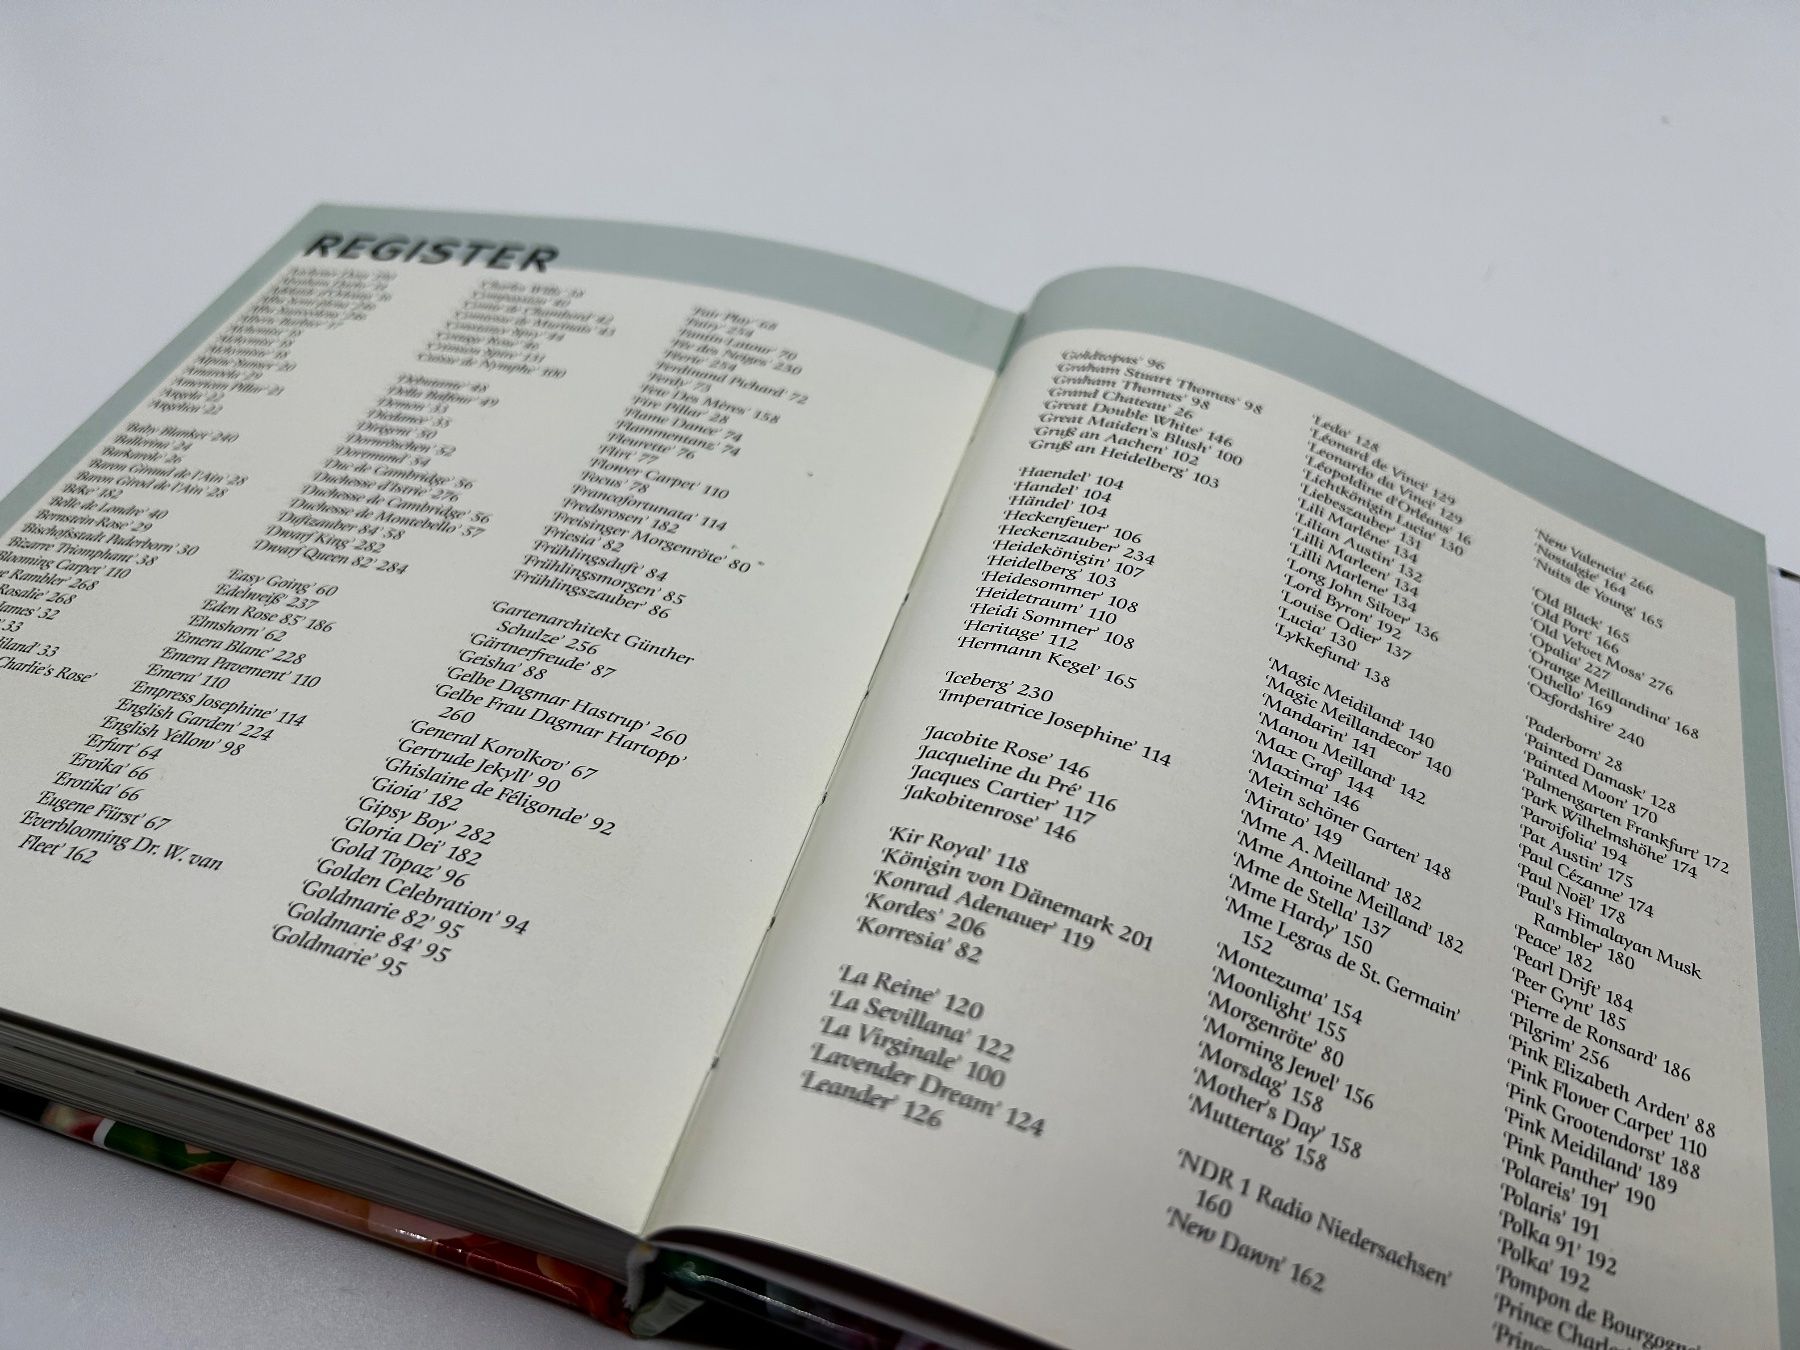 REGISTER
'Abraham Darby' 18
'Alba Semi-plena' 246
'Alba Suaveolens' 246
'Alberic Barbier' 17
'Alchemist' 18
'Alchymist' 18
'Alpine Sunset' 20
'Amaroela' 29
'American Pillar' 21
'Angela' 22
'Angelica' 22
'Baby Blanket' 240
'Ballerina' 24
'Barkarole' 26
'Baron Giraud de l'Ain' 28
'Baron Girod de l'Ain' 28
'Béke' 182
'Belle de Londre' 40
'Bernstein-Rose' 29
'Bischofsstadt Paderborn' 30
'Bizarre Triomphant' 38
Blooming Carpet' 110
Rambler' 268
Rosalie' 268
32
33
iland' 33
Charlie's Rose'
'Compassion' 40
'Comte de Chambord' 42
'Comtesse de Murinais' 43
'Constance Spry' 44
'Cottage Rose' 46
'Crimson Spire' 131
'Cuisse de Nymphe' 100
'Débutante' 48
'Della Balfour' 49
'Demon' 33
'Diadance' 35
'Dirigent' 50
'Dornröschen' 52
'Dortmund' 54
'Duc de Cambridge' 56
'Duchesse d'Istrie' 276
'Duchesse de Cambridge' 56
'Duchesse de Montebello' 57
'Duftzauber 84' 58
'Dwarf King' 282
'Dwarf Queen 82' 284
'Easy Going' 60
'Edelweiß' 237
'Eden Rose 85' 186
'Elmshorn' 62
'Emera Blanc' 228
'Emera Pavement' 110
'Emera' 110
'Empress Josephine' 114
'English Garden' 224
'English Yellow' 98
'Erfurt' 64
'Eroika' 66
'Erotika' 66
'Eugene Fürst' 67
'Everblooming Dr. W. van
Fleet' 162
'Fair Play' 68
'Fairy' 254
'Fantin-Latour' 70
'Fée des Neiges' 230
'Féerie' 254
'Ferdinand Pichard' 72
'Ferdy' 73
'Fete Des Mères' 158
'Fire Pillar' 28
'Flame Dance' 74
'Flammentanz' 74
'Fleurette' 76
'Flirt' 77
'Flower Carpet' 110
'Focus' 78
'Francofortunata' 114
'Fredsrosen' 182
'Freisinger Morgenröte' 80
'Friesia' 82
'Frühlingsduft' 84
'Frühlingsmorgen' 85
'Frühlingszauber' 86
'Gartenarchitekt Günther
Schulze' 256
'Gärtnerfreude' 87
'Geisha' 88
'Gelbe Dagmar Hastrup' 260
'Gelbe Frau Dagmar Hartopp'
260
'General Korolkov' 67
'Gertrude Jekyll' 90
'Ghislaine de Féligonde' 92
'Gioia' 182
'Gipsy Boy' 282
'Gloria Dei' 182
'Gold Topaz' 96
'Golden Celebration' 94
'Goldmarie 82' 95
'Goldmarie 84' 95
'Goldmarie' 95
'Goldtopas' 96
'Graham Stuart Thomas' 98
'Graham Thomas' 98
'Grand Chateau' 26
'Great Double White' 146
'Great Maiden's Blush' 100
'Gruß an Aachen' 102
'Gruß an Heidelberg' 103
'Haendel' 104
'Handel' 104
'Händel' 104
'Heckenfeuer' 106
'Heckenzauber' 234
'Heidekönigin' 107
'Heidelberg' 103
'Heidesommer' 108
'Heidetraum' 110
'Heidi Sommer' 108
'Heritage' 112
'Hermann Kegel' 165
'Iceberg' 230
'Imperatrice Josephine' 114
'Jacobite Rose' 146
'Jacqueline du Pré' 116
'Jacques Cartier' 117
'Jakobitenrose' 146
'Kir Royal' 118
'Königin von Dänemark 201
'Konrad Adenauer' 119
'Kordes' 206
'Korresia' 82
'La Reine' 120
'La Sevillana' 122
'La Virginale' 100
'Lavender Dream' 124
'Leander' 126
'Leda' 128
'Léonard de Vinci' 129
'Leonardo da Vinci' 129
'Léopoldine d'Orléans' 16
'Lichtkönigin Lucia' 130
'Liebeszauber' 131
'Lili Marléne' 134
'Lilian Austin' 132
'Lilli Marleen' 134
'Lilli Marlene' 134
'Long John Silver' 136
'Lord Byron' 192
'Louise Odier' 137
'Lucia' 130
'Lykkefund' 138
'Magic Meidiland' 140
'Magic Meillandecor' 140
'Mandarin' 141
'Manou Meilland' 142
'Max Graf' 144
'Maxima' 146
'Mein schöner Garten' 148
'Mirato' 149
'Mme A. Meilland' 182
'Mme Antoine Meilland' 182
'Mme de Stella' 137
'Mme Hardy' 150
'Mme Legras de St. Germain'
152
'Montezuma' 154
'Moonlight' 155
'Morgenröte' 80
'Morning Jewel' 156
'Morsdag' 158
'Mother's Day' 158
'Muttertag' 158
'NDR 1 Radio Niedersachsen'
160
'New Dawn' 162
'New Valencia' 266
'Nostalgie' 164
'Nuits de Young' 165
'Old Black' 165
'Old Port' 166
'Old Velvet Moss' 276
'Opalia' 227
'Orange Meillandina' 168
'Othello' 169
'Oxfordshire' 240
'Paderborn' 28
'Painted Damask' 128
'Painted Moon' 170
'Palmengarten Frankfurt' 172
'Park Wilhelmshöhe' 174
'Parvifolia' 194
'Pat Austin' 175
'Paul Cézanne' 174
'Paul Noël' 178
'Paul's Himalayan Musk
Rambler' 180
'Peace' 182
'Pearl Drift' 184
'Peer Gynt' 185
'Pierre de Ronsard' 186
'Pilgrim' 256
'Pink Elizabeth Arden' 88
'Pink Flower Carpet' 110
'Pink Grootendorst' 188
'Pink Meidiland' 189
'Pink Panther' 190
'Polareis' 191
'Polaris' 191
'Polka 91' 192
'Polka' 192
'Pompon de Bourgogne'
'Prince Charles
'Prince